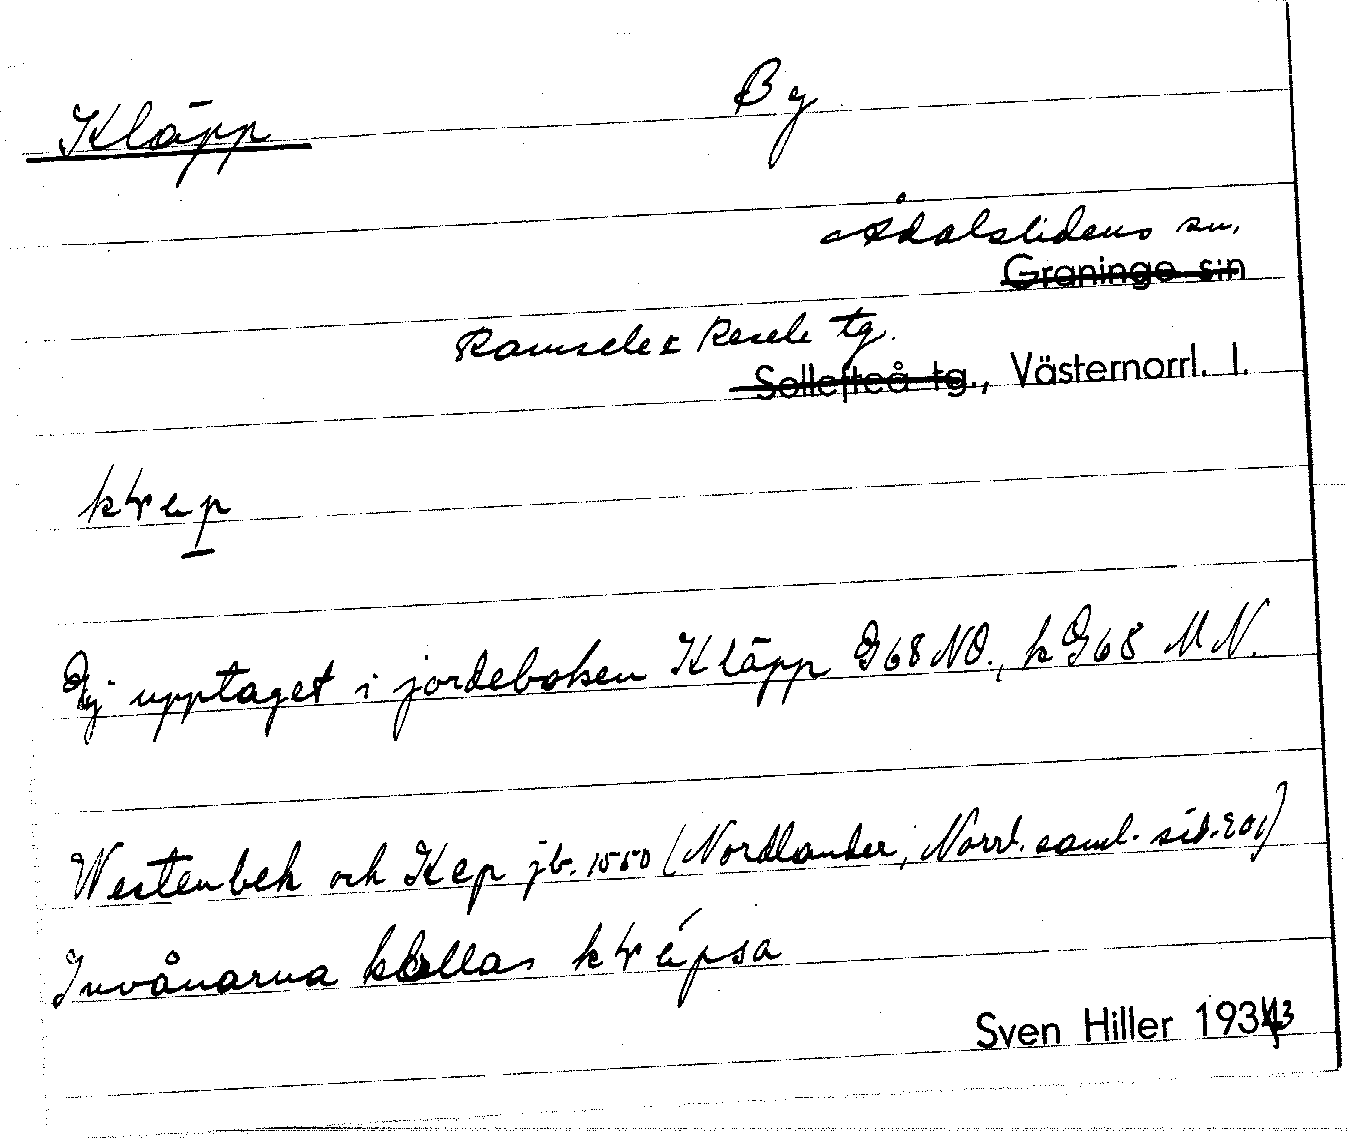 Kläpp By
Ådalslidens sn.
Graninge sn
Ramsele & Resele tg.
Sollefteå tg., Västernorrl. l.
Ej upptaget i jordeboken Kläpp G68 NO., k G68 M N.
Westenbek och Kep jb. 1550 (Nordlander, Norrl. saml. sid. 201)
Invånarna kallas
Sven Hiller 1943